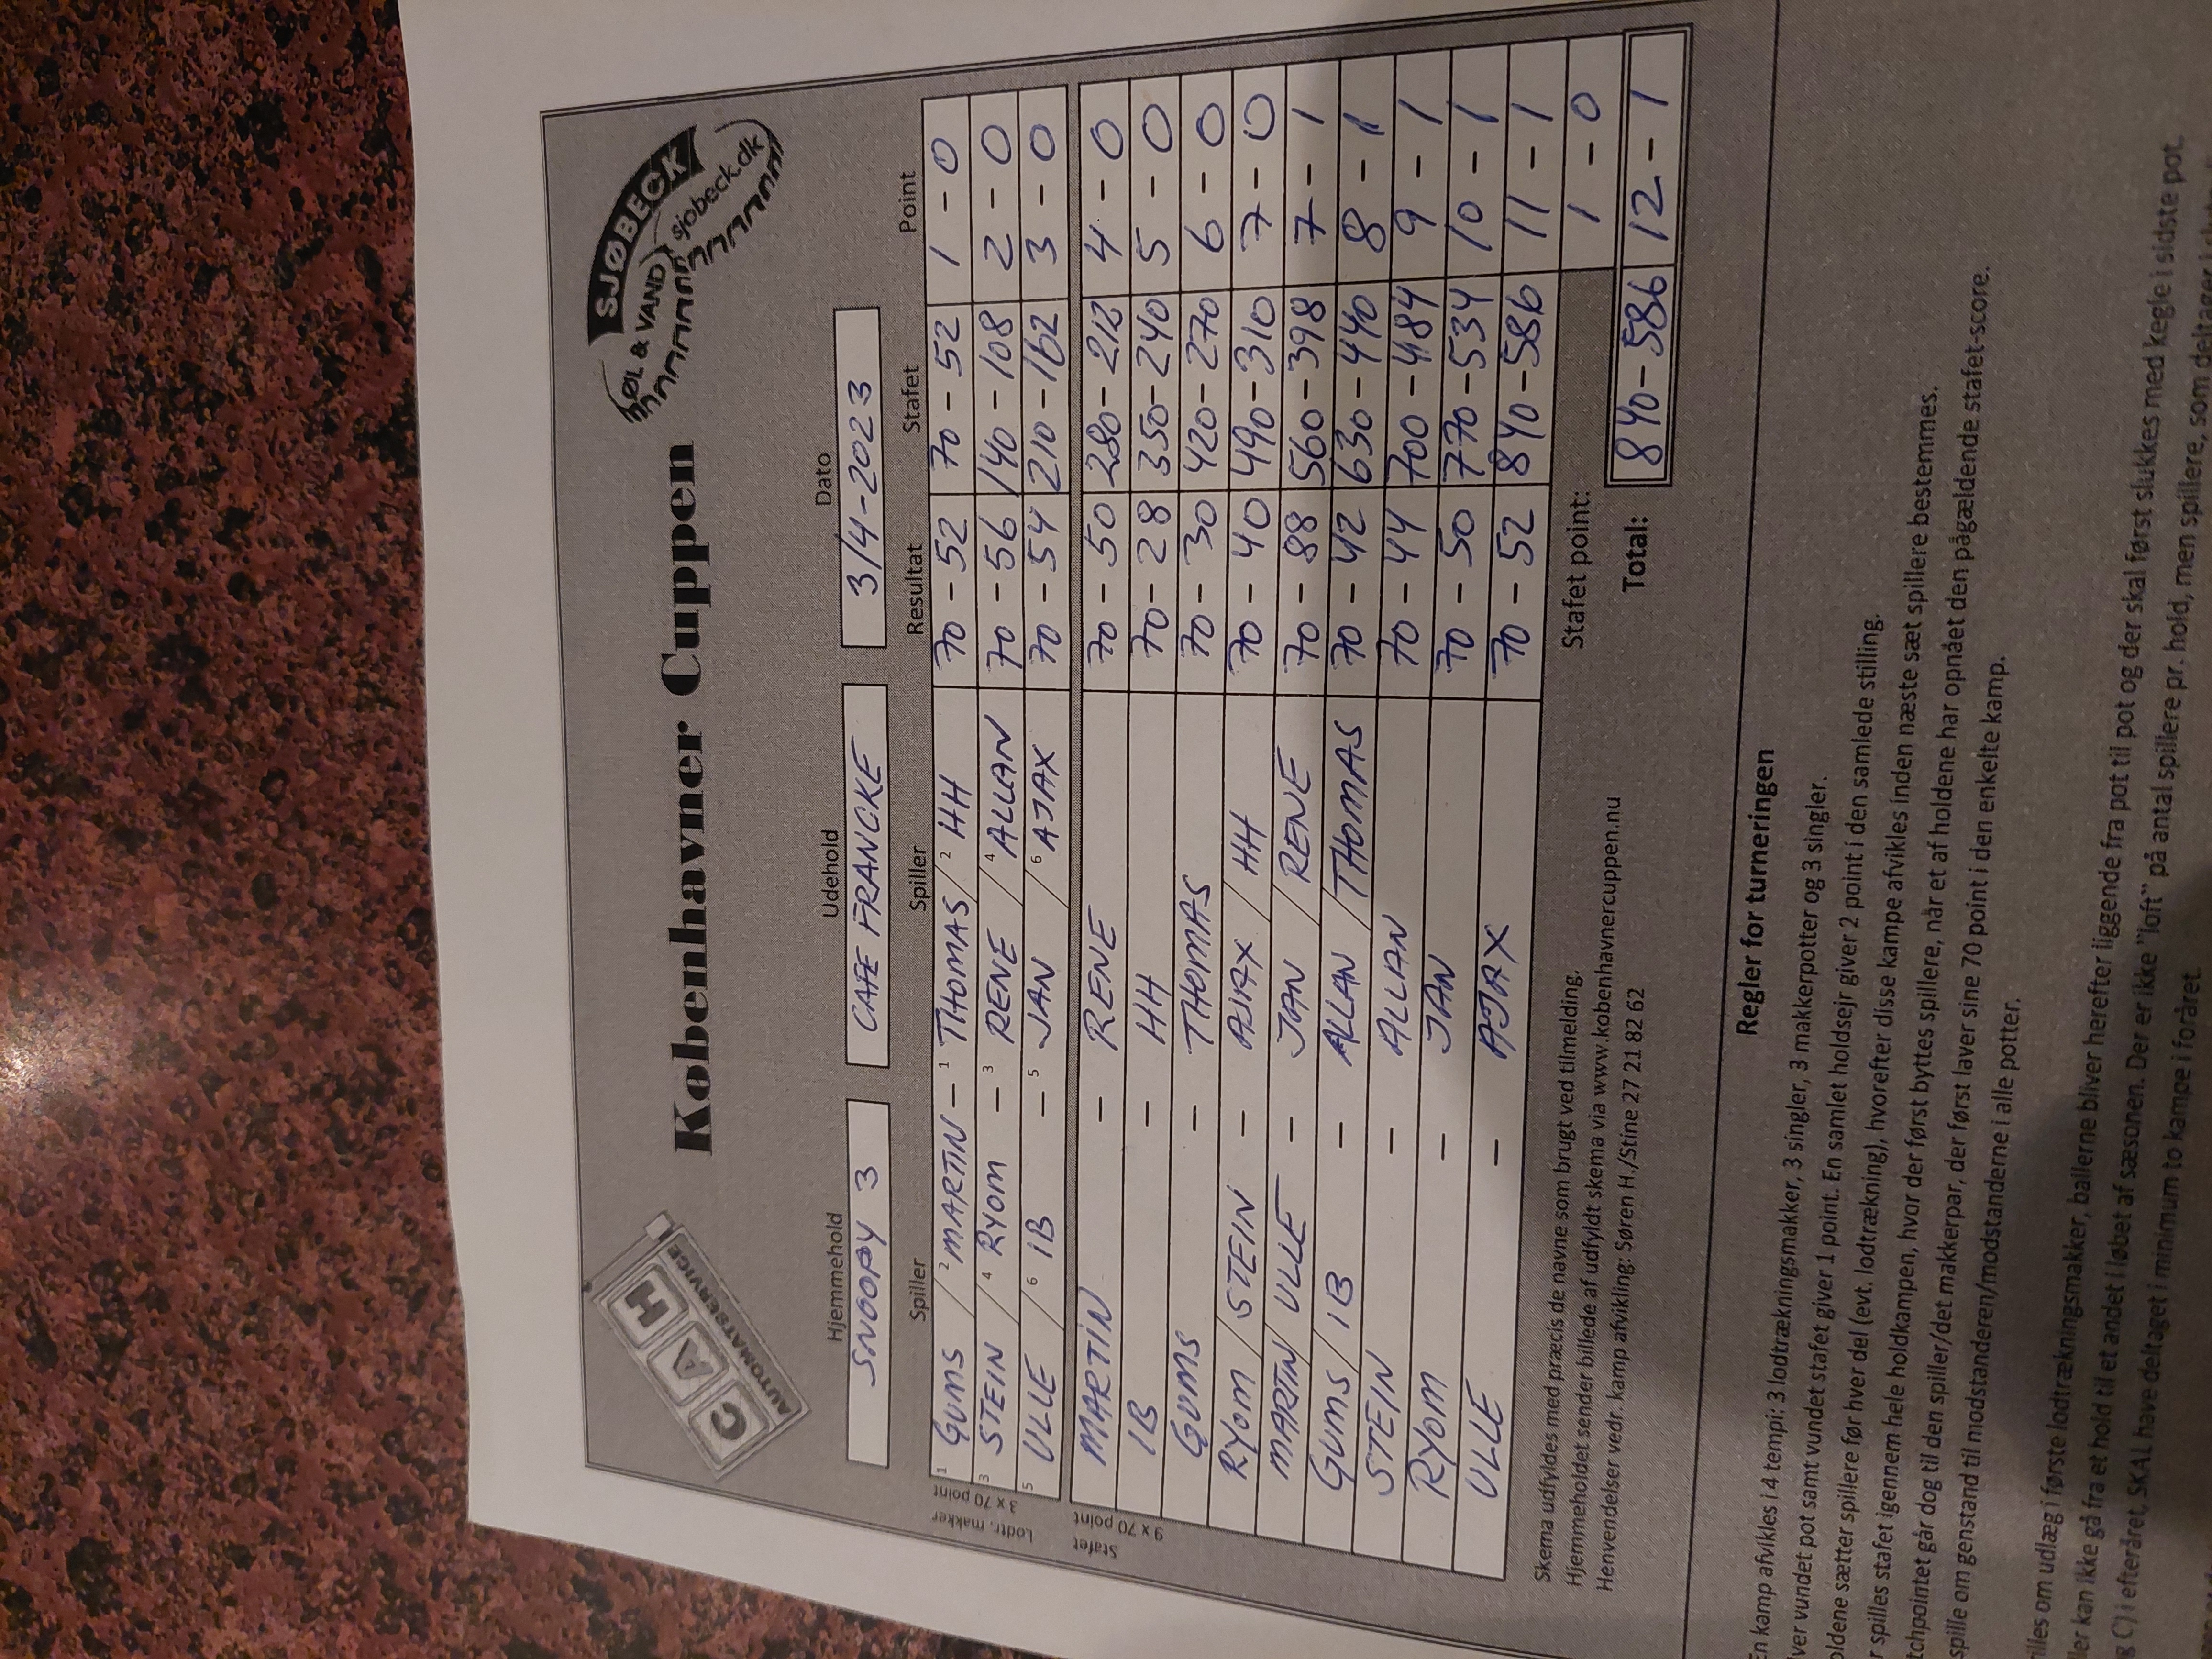 CAH
AUTOMATSERVICE
Københavner Cuppen
SJØBECK
ØL & VAND
sjobeck.dk
Hjemmehold Udehold Dato
SNOOPY 3 CAFE FRANCKE 3/4-2023
Spiller Spiller Resultat Stafet Point
Lodtr. makker
3 x 70 point
1 GUMS / 2 MARTIN - 1 THOMAS / 2 HH 70 - 52 70 - 52 1 - 0
3 STEIN / 4 RYOM - 3 RENE / 4 ALLAN 70 - 56 140 - 108 2 - 0
5 ULLE / 6 IB - 5 JAN / 6 AJAX 70 - 54 210 - 162 3 - 0
Stafet
9 x 70 point
MARTIN - RENE 70 - 50 280 - 212 4 - 0
IB - HH 70 - 28 350 - 240 5 - 0
GUMS - THOMAS 70 - 30 420 - 270 6 - 0
RYOM / STEIN - AJAX / HH 70 - 40 490 - 310 7 - 0
MARTIN / ULLE - JAN / RENE 70 - 88 560 - 398 7 - 1
GUMS / IB - ALLAN / THOMAS 70 - 42 630 - 440 8 - 1
STEIN - ALLAN 70 - 44 700 - 484 9 - 1
RYOM - JAN 70 - 50 770 - 534 10 - 1
ULLE - AJAX 70 - 52 840 - 586 11 - 1
Stafet point: 1 - 0
Total: 840 - 586 12 - 1
Skema udfyldes med præcis de navne som brugt ved tilmelding.
Hjemmeholdet sender billede af udfyldt skema via www.kobenhavnercuppen.nu
Henvendelser vedr. kamp afvikling: Søren H./Stine 27 21 82 62
Regler for turneringen
En kamp afvikles i 4 tempi; 3 lodtrækningsmakker, 3 singler, 3 makkerpotter og 3 singler.
ver vundet pot samt vundet stafet giver 1 point. En samlet holdsejr giver 2 point i den samlede stilling.
oldene sætter spillere før hver del (evt. lodtrækning), hvorefter disse kampe afvikles inden næste sæt spillere bestemmes.
r spilles stafet igennem hele holdkampen, hvor der først byttes spillere, når et af holdene har opnået den pågældende stafet-score.
tchpointet går dog til den spiller/det makkerpar, der først laver sine 70 point i den enkelte kamp.
spille om genstand til modstanderen/modstanderne i alle potter.
illes om udlæg i første lodtrækningsmakker, ballerne bliver herefter liggende fra pot til pot og der skal først slukkes med kegle i sidste pot.
ller kan ikke gå fra et hold til et andet i løbet af sæsonen. Der er ikke "loft" på antal spillere pr. hold, men spillere, som deltager i
g C) i efteråret, SKAL have deltaget i minimum to kampe i foråret.